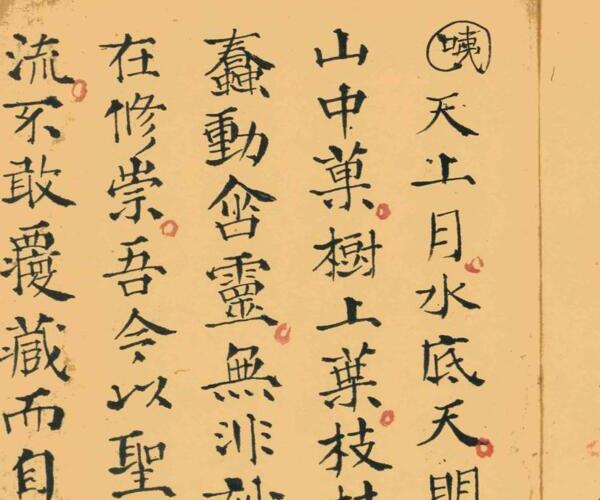 咦天上月水底天
山中菓樹上葉枝
蠢動含靈無非
在修崇吾今以聖
流不敢覆藏而自